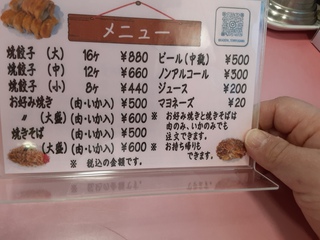 メニュー
焼餃子 (大) 16ケ ¥880
焼餃子 (中) 12ケ ¥660
焼餃子 (小) 8ケ ¥440
お好み焼き (肉・いか入) ¥500
〃 (大盛) (肉・いか入) ¥600
焼きそば (肉・いか入) ¥500
〃 (大盛) (肉・いか入) ¥600
※ 税込の金額です。
ビール(中瓶) ¥500
ノンアルコール ¥300
ジュース ¥200
マヨネーズ ¥20
※ お好み焼きと焼きそばは
肉のみ、いかのみでも
注文できます。
※ お持ち帰りも
できます。